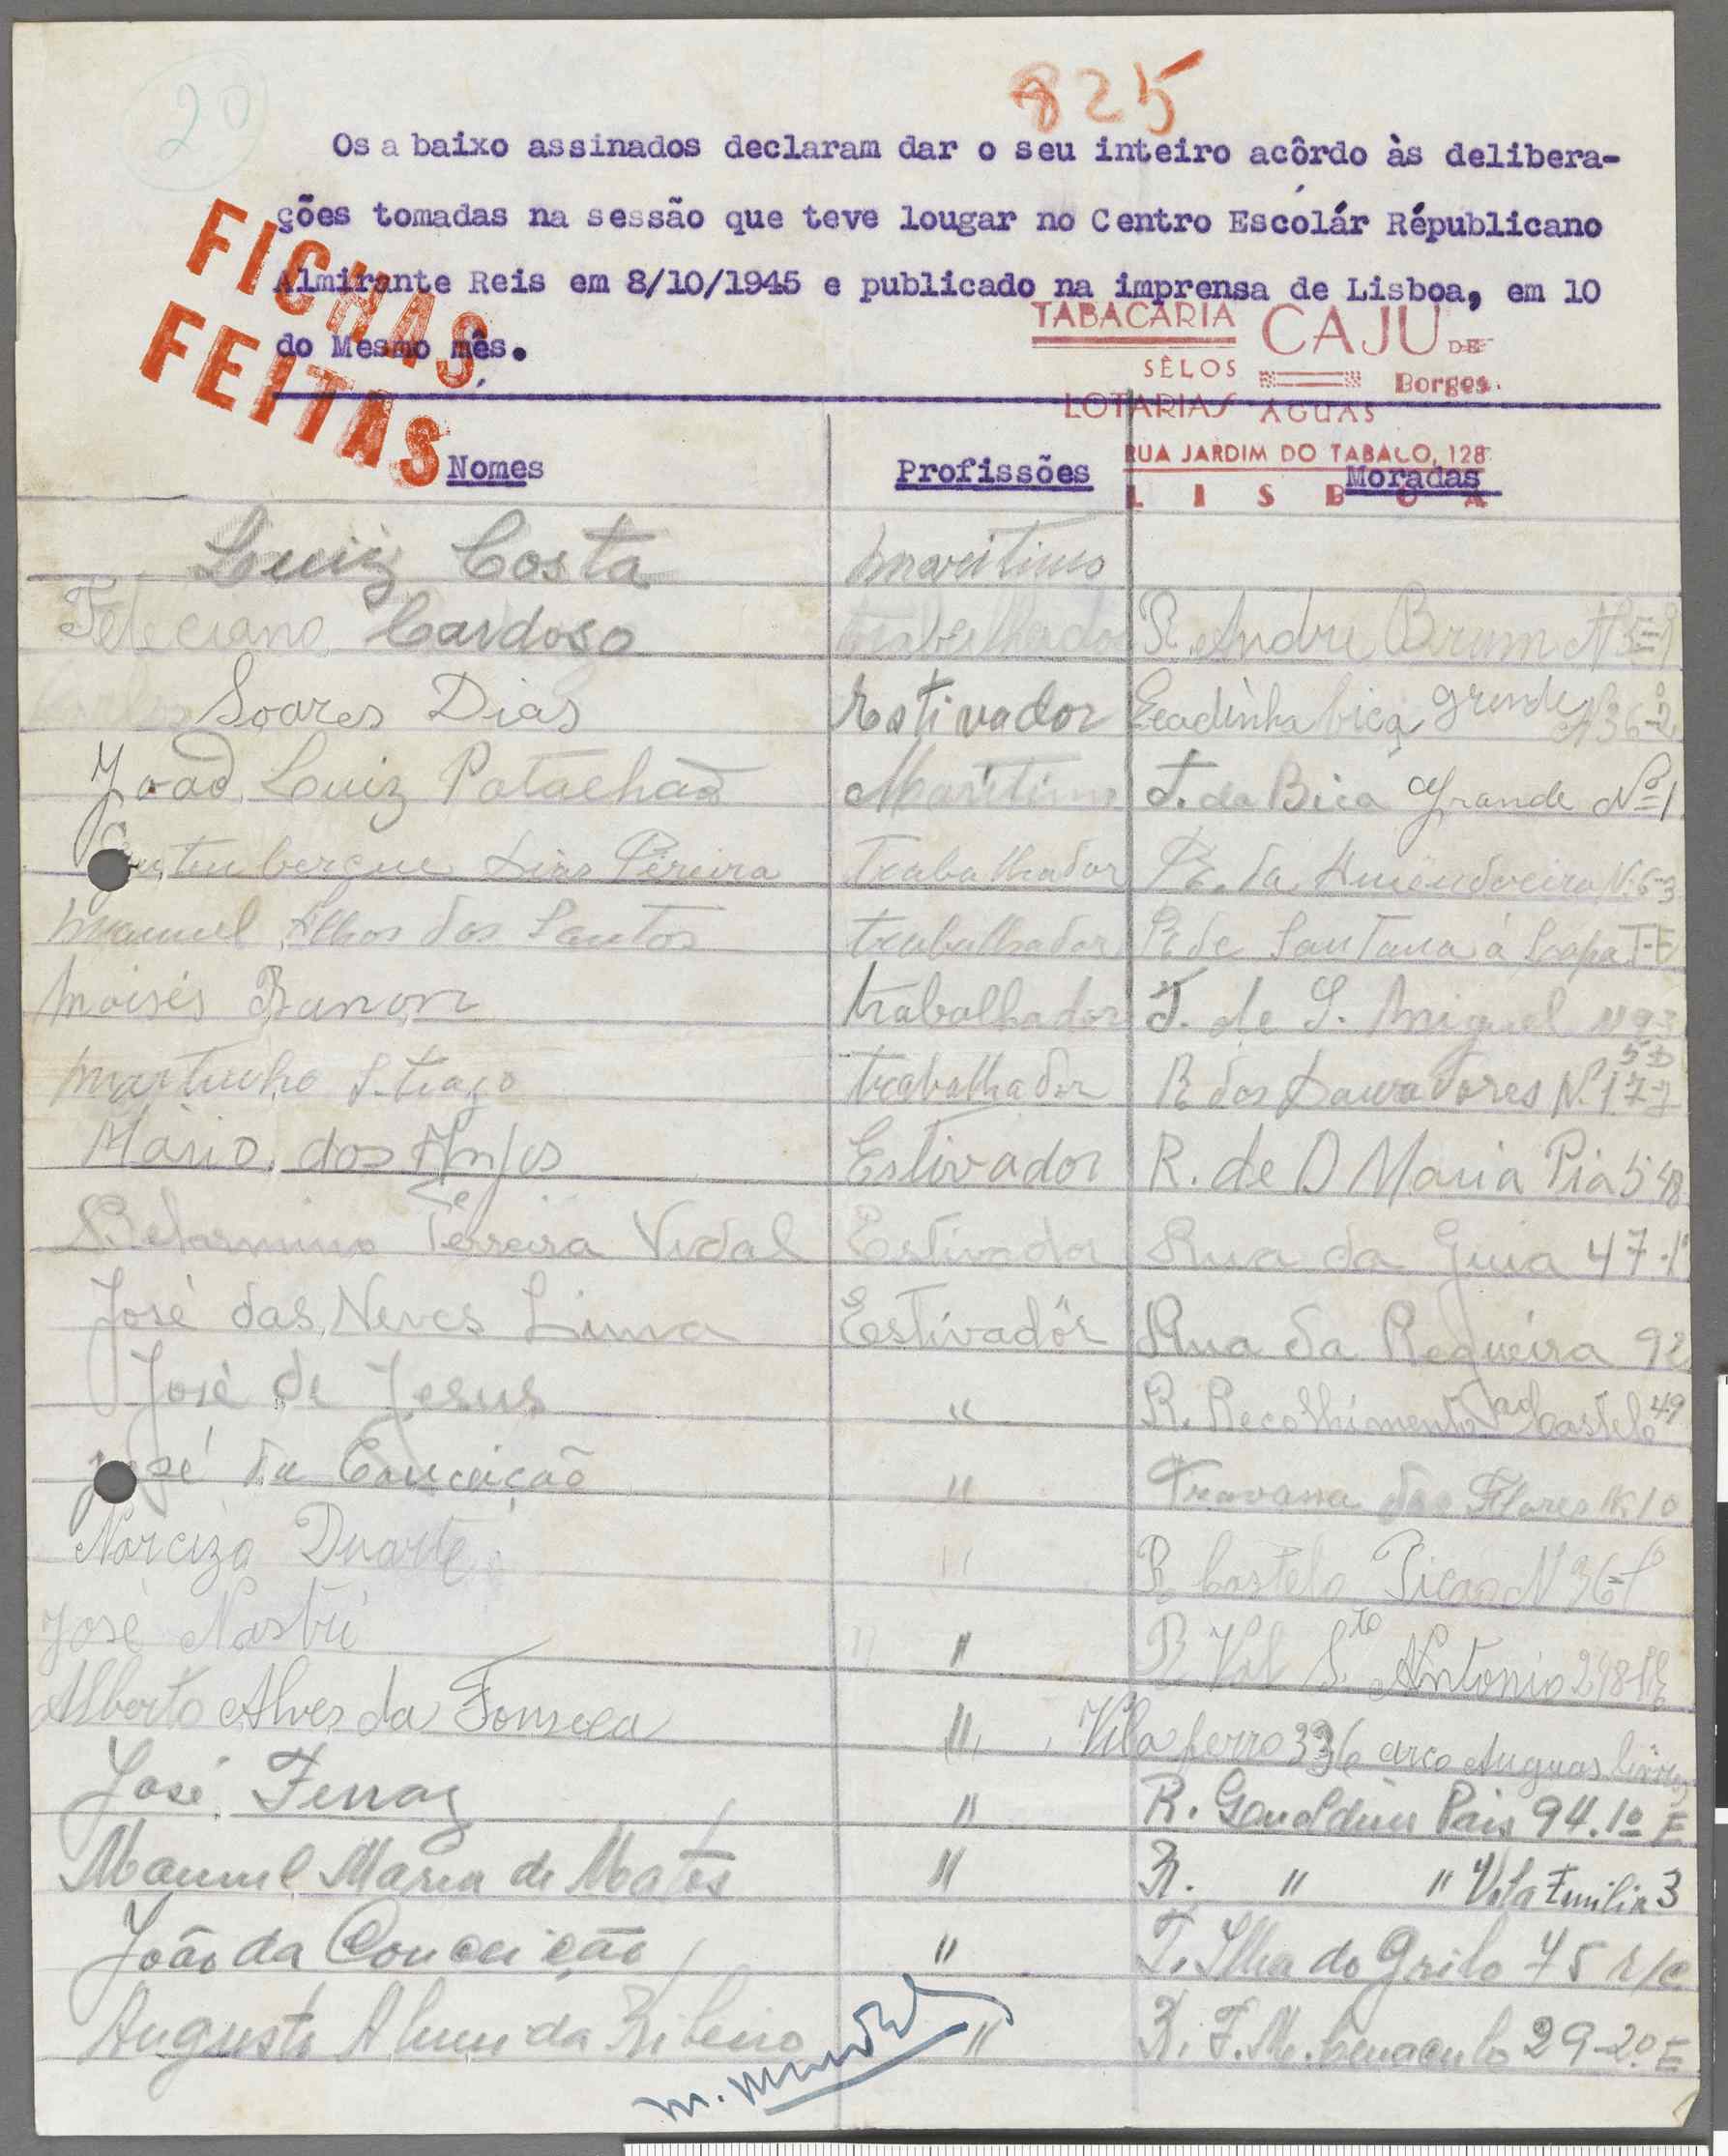 20
825
Os a baixo assinados declaram dar o seu inteiro acôrdo às delibera-
ções tomadas na sessão que teve lougar no Centro Escolár Républicano
Almirante Reis em 8/10/1945 e publicado na imprensa de Lisboa, em 10
do Mesmo mês.
FICHAS
FEITAS
TABACARIA CAJU DE
SÊLOS Borges.
LOTARIAS AGUAS
RUA JARDIM DO TABACO, 128
LISBOA
Nomes Profissões Moradas
Luiz Costa maritimo
Feleciano Cardoso trabalhador R. Andre Brum Nº
Soares Dias Estivador Ecadinha bica grande Nº 36-2
João Luiz Patachão Maritimo T. da Bica Grande Nº 1
Gutembergue Dias Pereira Trabalhador R. da Amendoeira N. 6-3
Manuel Filhos dos Santos trabalhador R de Santana á Lapa
Moisés trabalhador T. de S. Miguel Nº 9
Martinho S. tiago trabalhador R dos Douradores Nº 177
Mário dos Anjos Estivador R. de D Maria Pia 548
Belarmino Ferreira Vidal Estivador Rua da Guia 47-1º
José das Neves Lima Estivadör Rua da Regueira 92
José de Jesus " R. Recolhimento ao Castelo 49
José da Conceição " Travessa das Flores N. 10
Narciza Duarte " R Castelo Picão Nº 36-1º
José " " R Val Sto Antonio
Alberto Alves da Fonseca " Vila ferro 336 arco Auguas livres
José Ferraz " R. Gualdim Pais 94. 1º E
Manuel Maria de Matos " R. " " Vila Emilia 3
João da Conceição " T. Ilha do Grilo 45 r/c
Augusto Almeida Ribeiro " R. F. M. Cenaculo 29-2º E